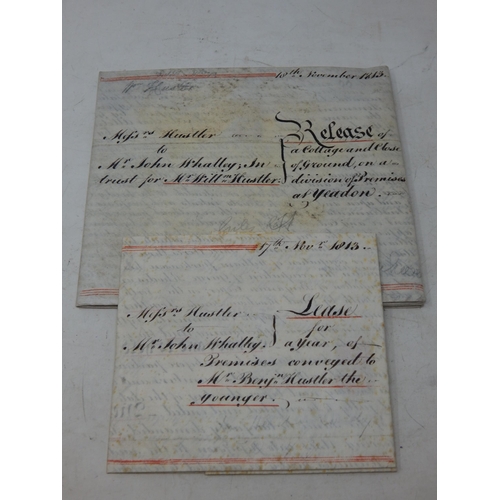 18th November 1813.
Messrs Hustler
to
Mr John Whalley, In
trust for Mr Willm Hustler.
Release of
a Cottage and Close
of Ground, on a
division of Premises
at Yeadon.
17th Novr 1813.
Messrs Hustler
to
Mr John Whalley.
Lease
for
a Year, of
Premises conveyed to
Mr Benjn Hustler the
younger.